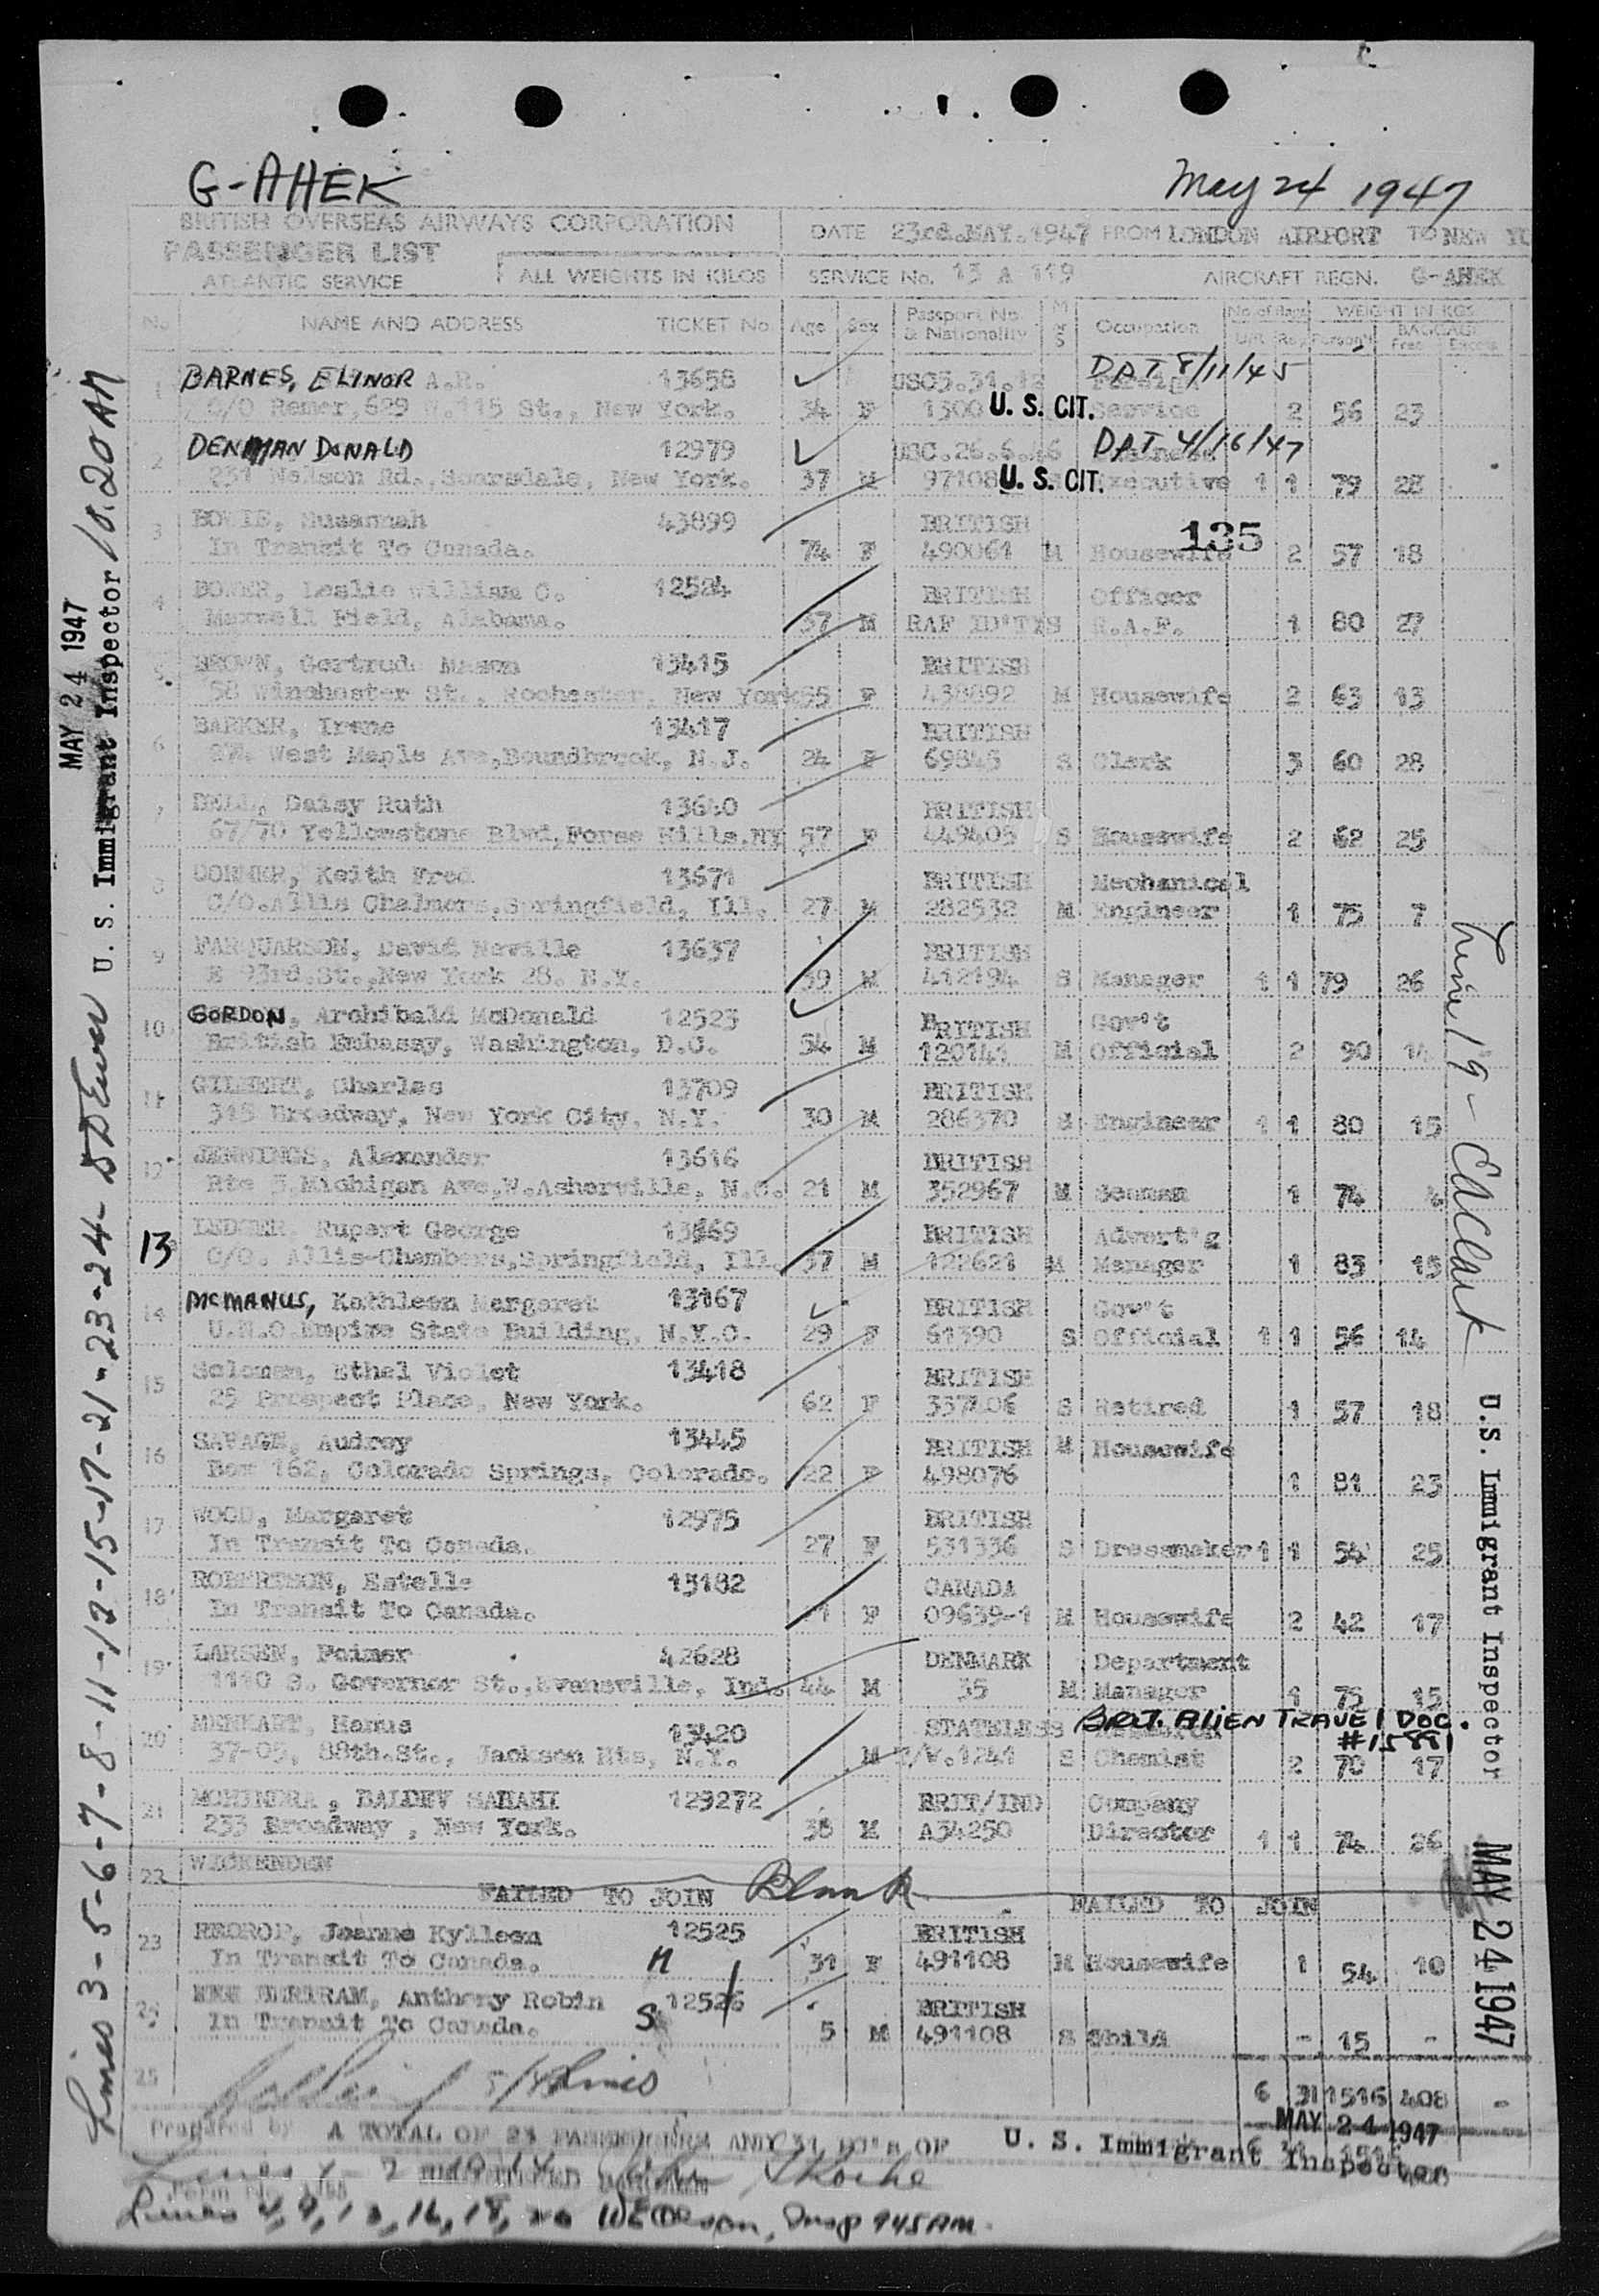 G-AHEK
May 24 1947
BRITISH OVERSEAS AIRWAYS CORPORATION
PASSENGER LIST
ATLANTIC SERVICE
ALL WEIGHTS IN KILOS
DATE 23rd.MAY.1947 FROM LONDON AIRPORT TO NEW YO
SERVICE No. 13 A 119 AIRCRAFT REGN. G-AHEK
No. NAME AND ADDRESS TICKET No. Age Sex Passport No. & Nationality M or S Occupation No. of Bags WEIGHT IN KGS
Person's BAGGAGE Free Excess
1 BARNES, ELINOR A.R. 13658 DAT 8/11/45
C/O Remer, 629 W.115 St., New York. 34 F 1300 U. S. CIT. Service 2 56 23
2 DENMAN DONALD 12979 USC.26.6.46 DAT 4/16/47
231 Nelson Rd., Scarsdale, New York. 37 M 97108 U. S. CIT. Executive 1 1 79 28
3 BOWIE, Susannah 43899 BRITISH 135
In Transit To Canada. 74 F 490061 M Housewife 2 57 18
4 BOWER, Leslie William C. 12524 BRITISH Officer
Maxwell Field, Alabama. 37 M RAF ID'TY S R.A.F. 1 80 27
5 BROWN, Gertrude Mason 13415 BRITISH
58 Winchester St., Rochester, New York 55 F 438892 M Housewife 2 63 13
6 BARKER, Irene 13417 BRITISH
274 West Maple Ave, Boundbrook, N.J. 24 F 69845 S Clerk 3 60 28
7 BELL, Daisy Ruth 13640 BRITISH
67/70 Yellowstone Blvd, Forse Hills.NY 57 F 449405 S Housewife 2 62 25
8 Keith Fred 13671 BRITISH Mechanical
C/O.Allis Chalmers, Springfield, Ill. 27 M 282532 M Engineer 1 75 7
9 FARQUARSON, David Neville 13637 BRITISH
E 93rd.St., New York 28. N.Y. 39 M 412194 S Manager 1 1 79 26
10 GORDON, Archibald McDonald 12523 BRITISH Gov't
British Embassy, Washington, D.C. 54 M 120141 M Official 2 90 14
11 GILBERT, Charles 13709 BRITISH
315 Broadway, New York City, N.Y. 30 M 286370 S Engineer 1 1 80 15
12 JENNINGS, Alexander 13616 BRITISH
Rte 3, Michigan Ave, W.Asherville, N.C. 21 M 352967 M Seaman 1 74 4
13 LEDGER. Rupert George 13669 BRITISH Advert'g
C/O. Allis-Chambers, Springfield, Ill. 37 M 122621 M Manager 1 83 15
14 MCMANUS, Kathleen Margaret 13167 BRITISH Gov't
U.N.O.Empire State Building, N.Y.C. 29 F 61390 S Official 1 1 56 14
15 Soloman, Ethel Violet 13418 BRITISH
25 Prospect Place, New York. 62 F 337406 S Retired 1 57 18
16 SAVAGE, Audrey 13445 BRITISH M Housewife
Box 162, Colorado Springs, Colorado. 22 F 498076 1 81 23
17 WOOD, Margaret 12975 BRITISH
In Transit To Canada. 27 F 531336 S Dressmaker 1 1 54 25
18 ROBERTSON, Estelle 13182 CANADA
In Transit To Canada. F 09639-1 M Housewife 2 42 17
19 LARSEN, Palmer 42628 DENMARK Department
1110 S. Governor St., Evansville, Ind. 44 M 35 M Manager 1 75 15
20 MENKART, Hanus 13420 STATELESS BRIT. ALIEN TRAVEL DOC. #15881
37-05, 88th.St., Jackson Hts, N.Y. M T/W.1241 S Chemist 2 70 17
21 MOHINDRA, BALDEV SAHAHI 129272 BRIT/IND Company
233 Broadway, New York. 38 M A34250 Director 1 1 74 26
22 WICKENDEN
FAILED TO JOIN Blank FAILED TO JOIN
23 REDROP, Joanne Kylleen 12525 BRITISH
In Transit To Canada. M 31 F 491108 M Housewife 1 54 10
24 BERTRAM, Anthony Robin 12526 BRITISH
In Transit To Canada. S 5 M 491108 S Child - 15 -
25
6 31 1516 408 -
Prepared by A TOTAL OF 23 PASSENGERS AND 31
U. S. Immigrant Inspector
MAY 24 1947
Lines 4, 9, 13, 16, 18, 20 Insp 945AM.
Lines 3-5-6-7-8-11-12-15-17-21-23-24-
U. S. Immigrant Inspector 10.20AM
MAY 24 1947
Line 19 - EAClark
U.S. Immigrant Inspector
MAY 24 1947